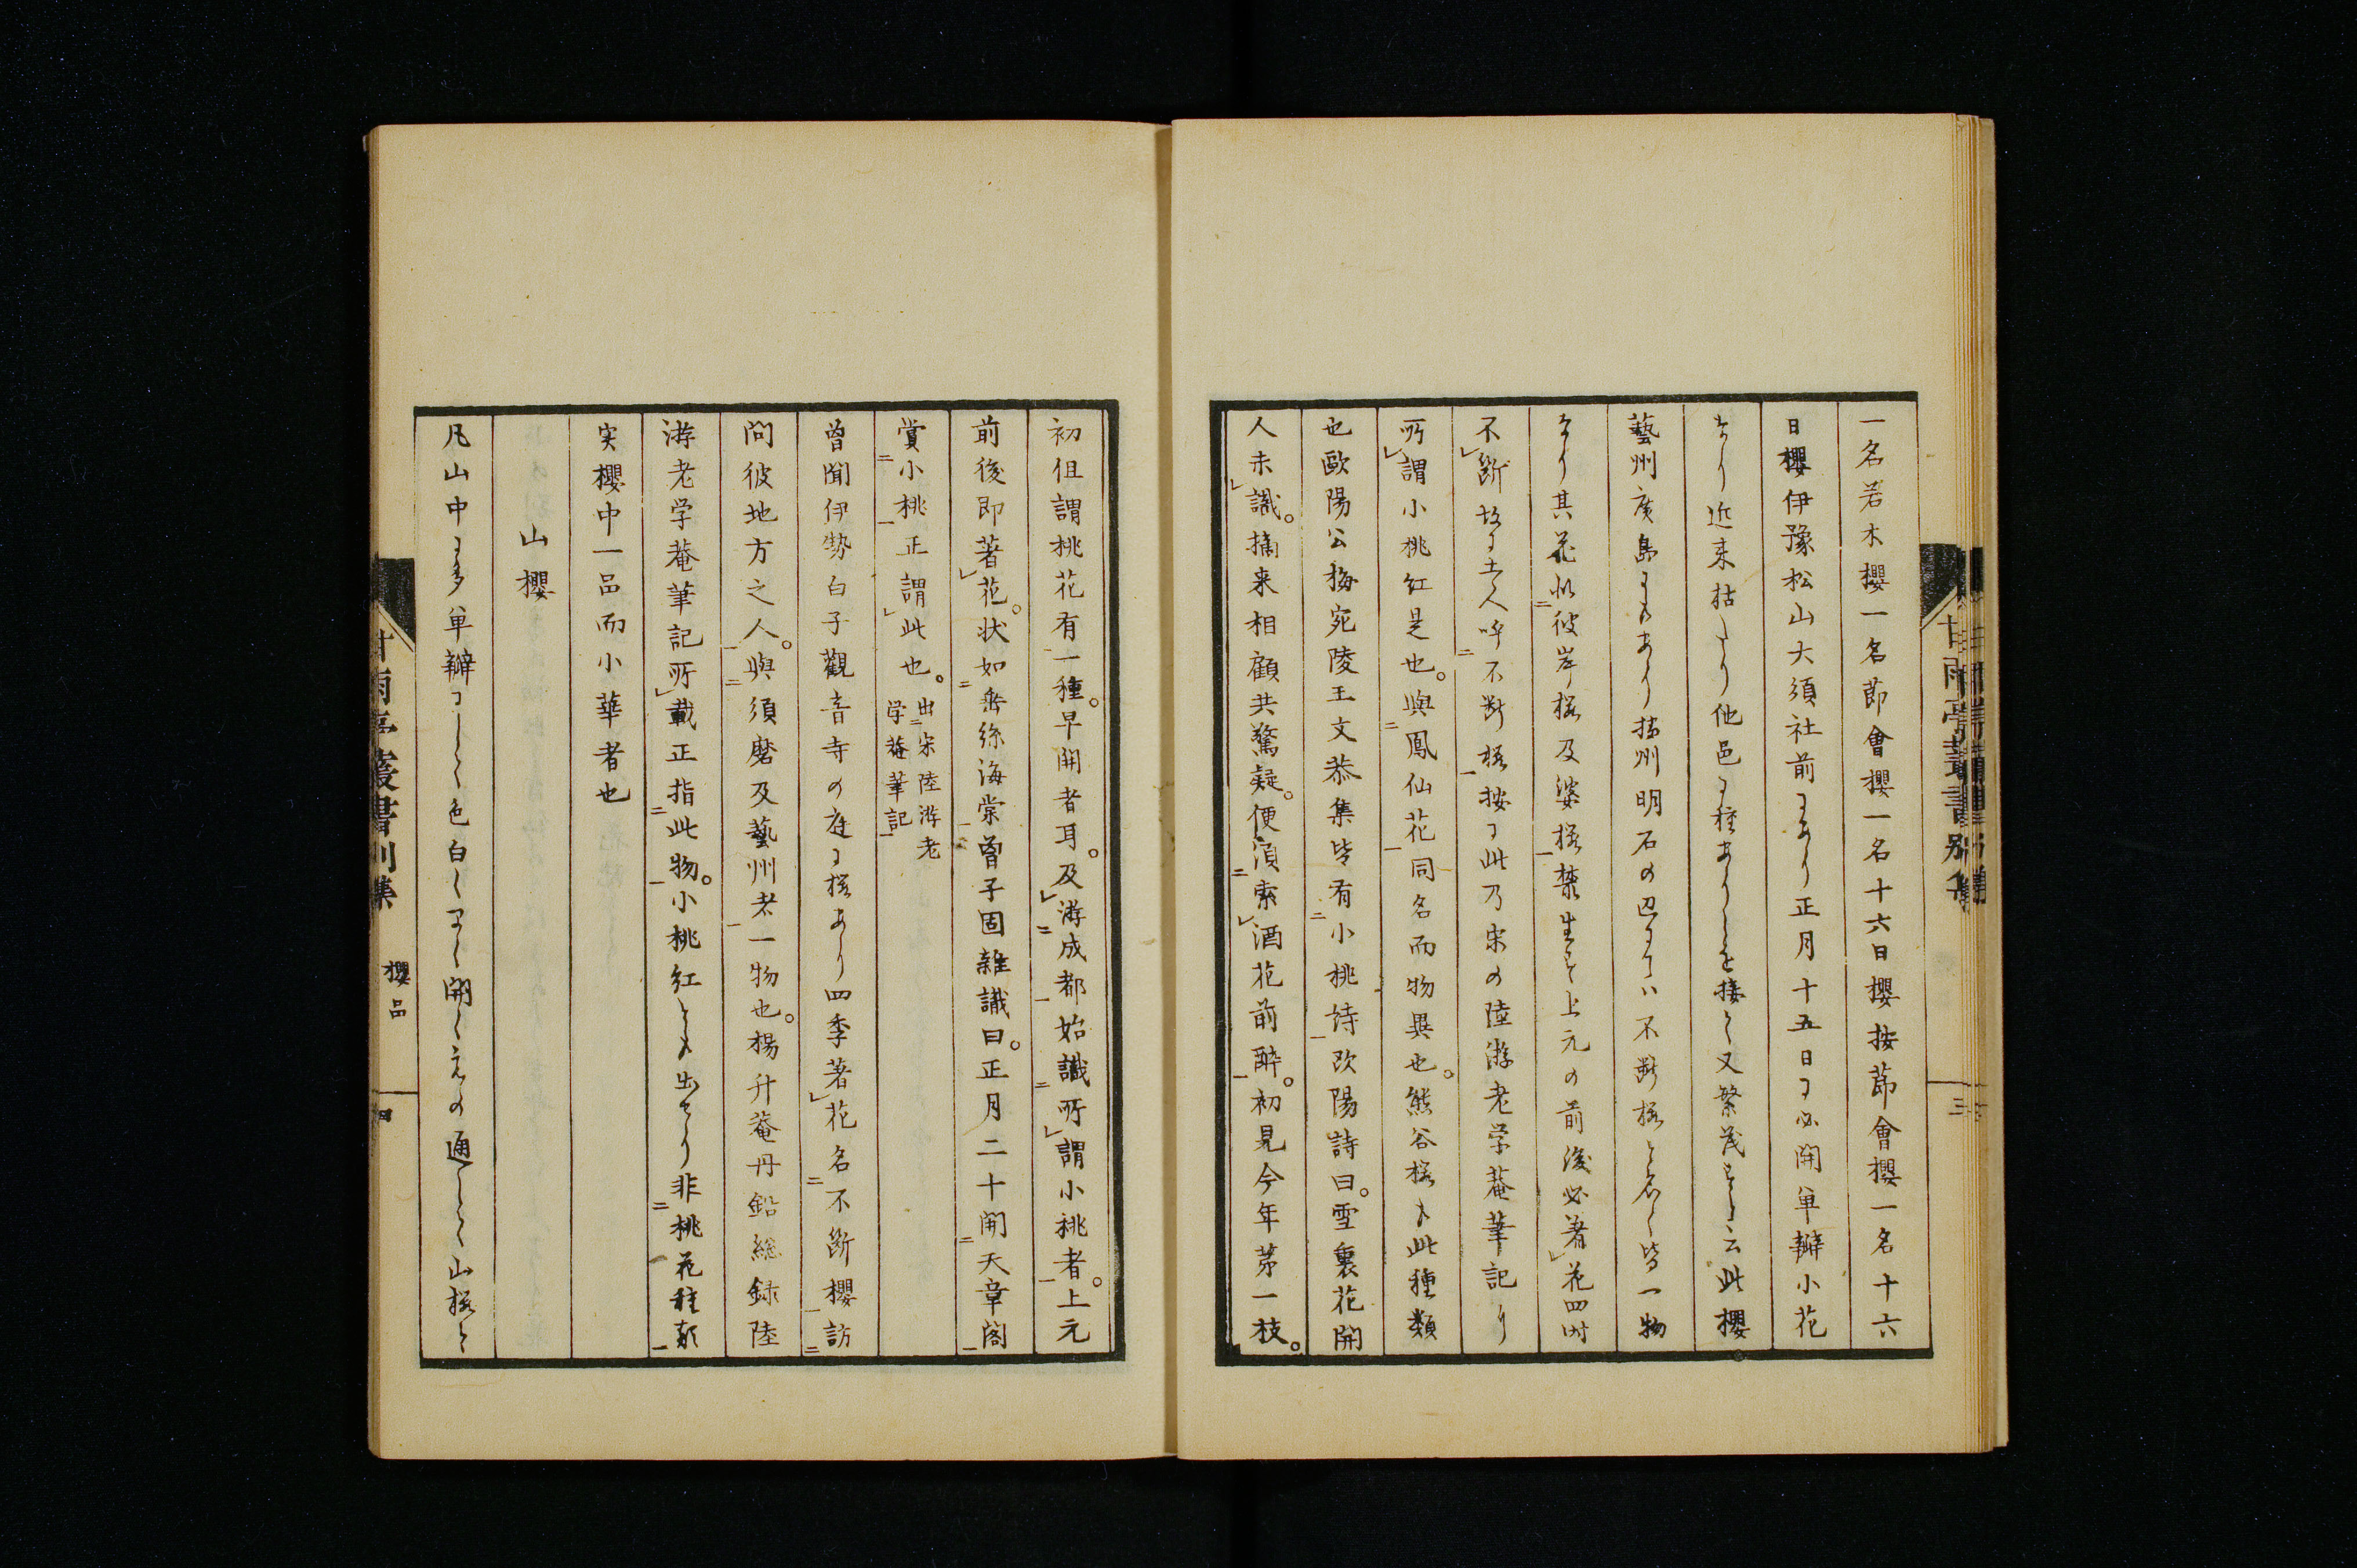 一名若木櫻一名節會櫻一名十六日櫻按節會櫻一名十六
日櫻伊豫松山大須社前にあり正月十五日に必開単瓣小花
なり近来枯たり他邑に種ありしを接て又繁茂すと云此櫻
藝州廣島にもあり播州明石の辺にては不断桜と名く皆一物
なり其花似二彼岸桜及婆桜一禁生す上元の前後必著レ花四時
不レ断故に土人呼二不断桜一按に此乃宋の陸游老学菴筆記に
所レ謂小桃紅是也。與二鳳仙花一同名而物異也。熊谷桜も此種類
也歐陽公梅宛陵王文恭集皆有二小桃詩一欧陽詩曰。雪裏花開
人未レ識。摘来相顧共驚疑。便須二索レ酒花前酔一。初見今年第一枝。
初但謂桃花有一種。早開者耳。及レ游二成都一始識二所レ謂小桃者一。上元
前後即著レ花。状如二垂絲海棠一曽子固雑識曰。正月二十開二天章閣一
賞二小桃一正謂レ此也。出二宋陸游老
学菴筆記一
曽聞伊勢白子觀音寺の庭に桜あり四季著レ花名二不断櫻一訪二
問彼地方之人一。與二須磨及藝州者一一物也。楊升菴丹鉛総録陸
游老学菴筆記所レ載正指二此物一。小桃紅とも出せり非二桃花種類一
実櫻中一品而小華者也
山櫻
凡山中に多単瓣にして色白く早く開く元の通して山桜と
甘雨亭叢書別集
櫻品
四
甘雨亭叢書別集
三